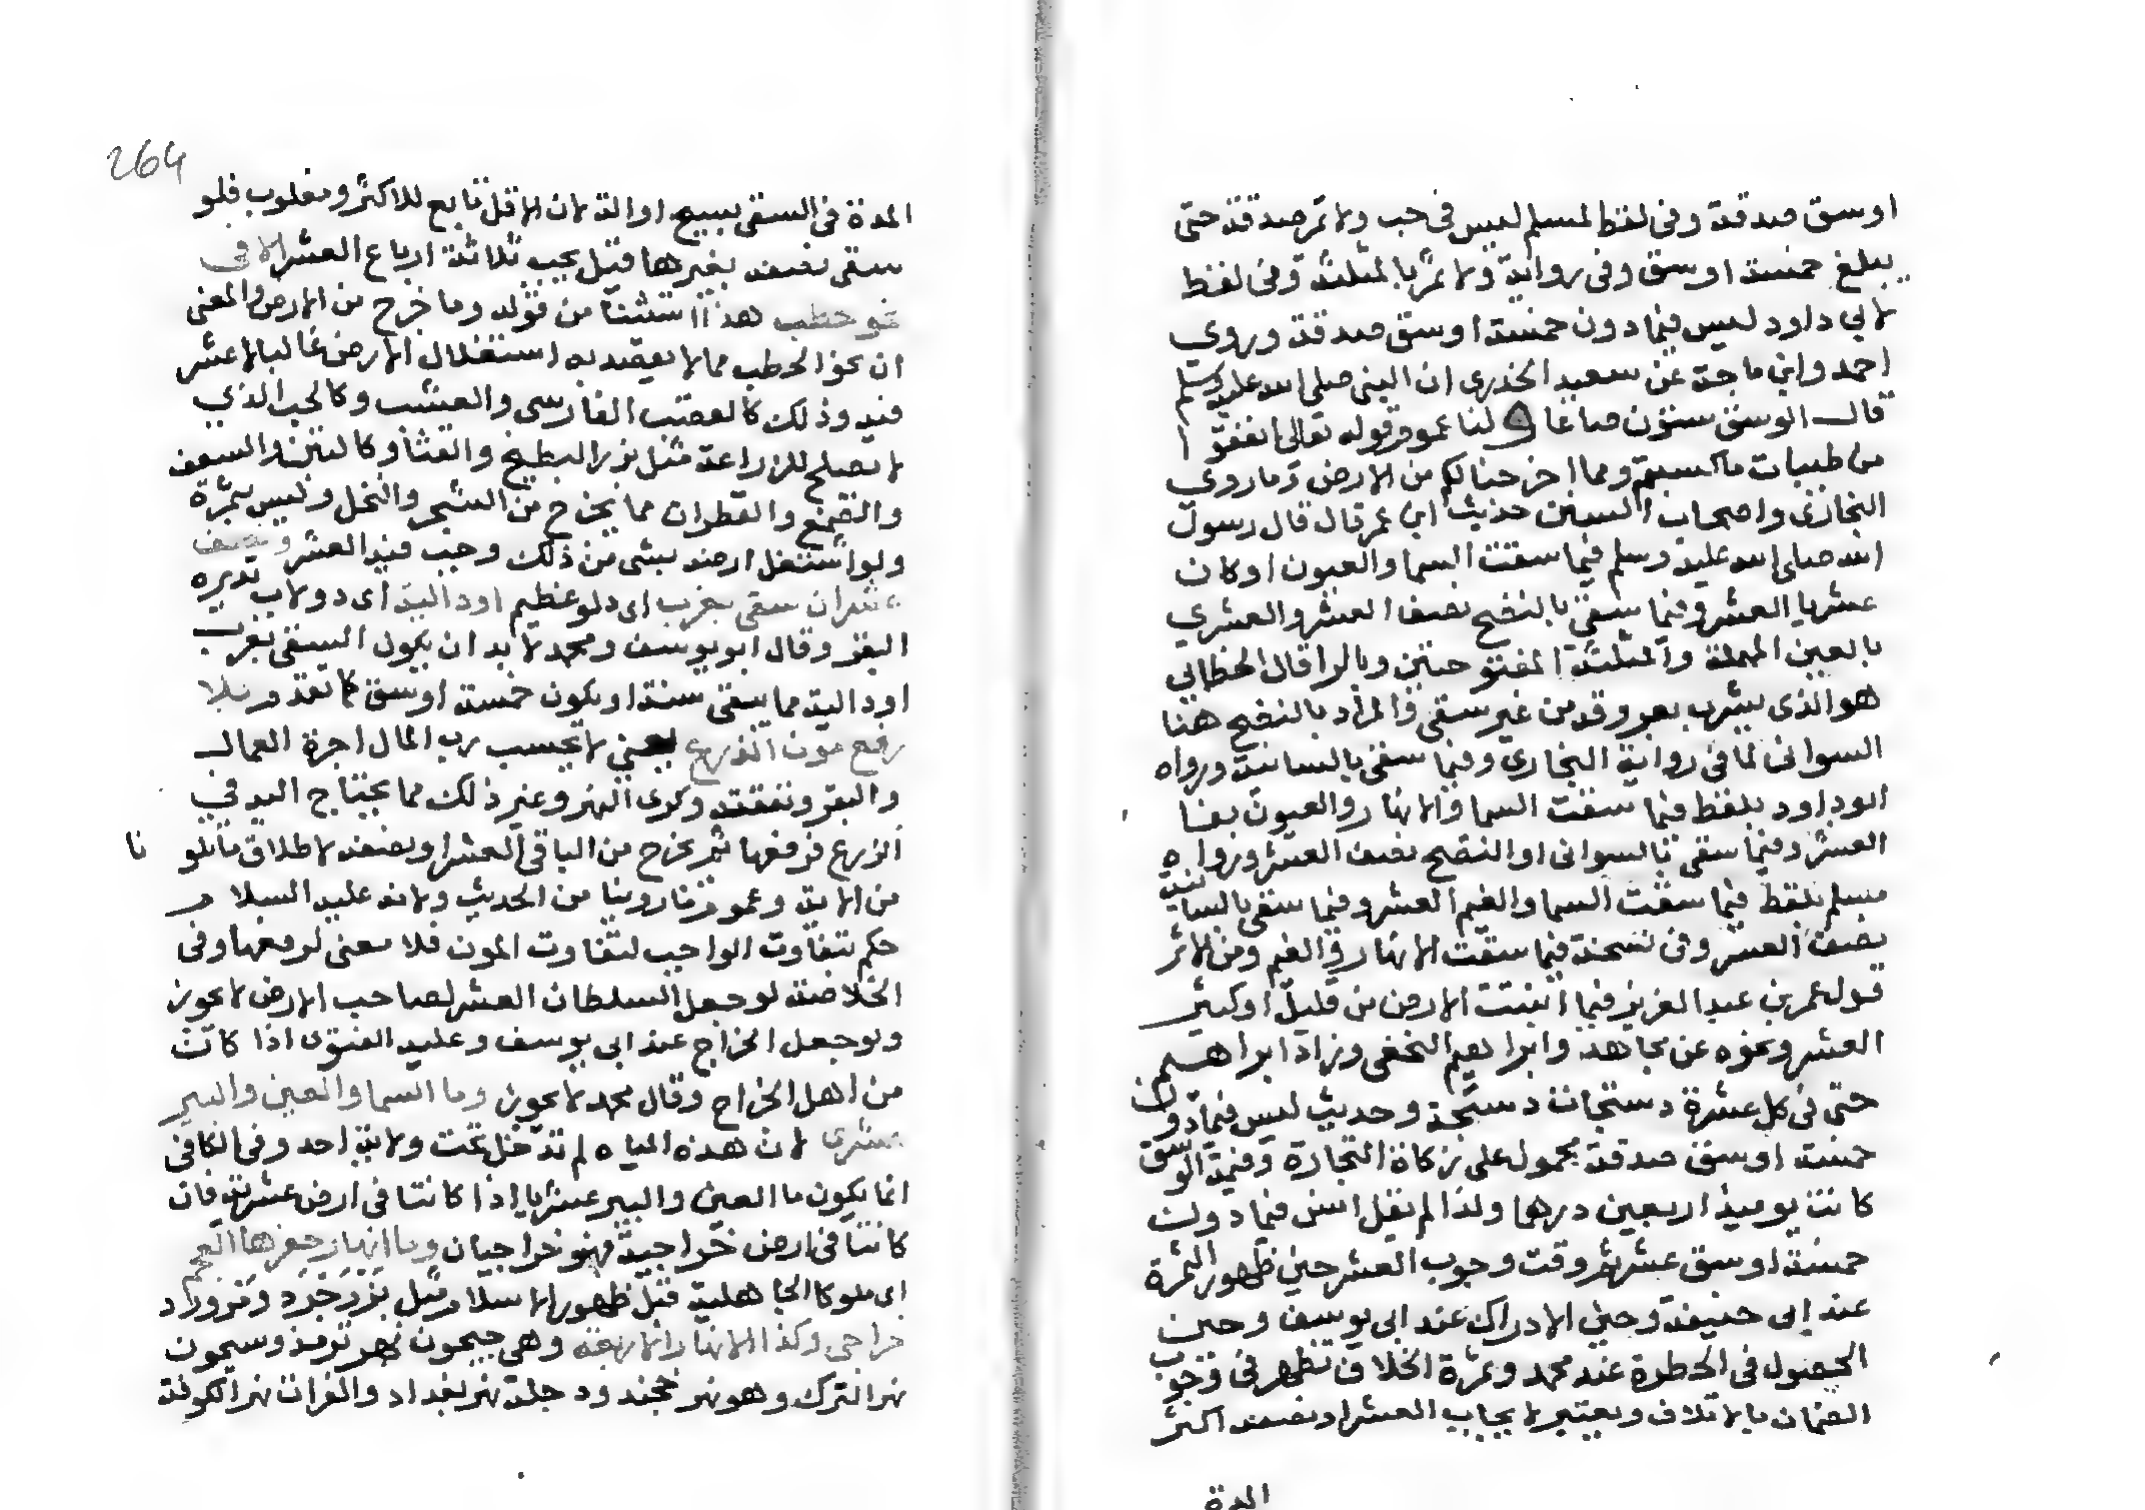 اوسق صدقة وفى لفظ لمسلم ليس فى حب ولا تمر صدقة حتى
يبلغ خمسة اوسق وفى رواية ولا ثمر بالمثلثة وفى لفظ
لابي داود ليس فيما دون خمسة اوسق صدقة وروى
احمد وابن ماجة عن سعيد الخدرى ان النبى صلى الله عليه وسلم
قال الوسق ستون صاعا ولنا عموم قوله تعالى انفقوا
من طيبات ما كسبتم ومما اخرجنا لكم من الارض وما روى
البخارى واصحاب السنن حديث ابن عمر قال قال رسول
الله صلى الله عليه وسلم فيما سقت السما والعيون او كان
عشريا العشر وفيما سقى بالنضح نصف العشر والعشري
بالعين المهملة والمثلثة المفتوحتين وبالرا قال الخطابي
هو الذى يشرب بعروقه من غير سقى والمراد بالنضح هنا
السوانى لما فى رواية البخارى وفيما سقى بالسانية ورواه
ابو داود بلفظ فيما سقت السما والانهار والعيون بعلا
العشر وفيما سقى بالسوانى او النضح نصف العشر ورواه
مسلم بلفظ فيما سقت السما والغيم العشر وفيما سقى بالسانية
نصف العشر وفى نسخة فيما سقت الانهار والغيم ومن الاثر
قول عمر بن عبد العزيز فيما انبتت الارض من قليل او كثير
العشر ونحوه عن مجاهد وابراهيم النخعى وزاد ابراهيم
حتى فى كل عشرة دستجات دستجة وحديث ليس فيما دون
خمسة اوسق صدقة محمول على زكاة التجارة وقيمة الوسق
كانت يوميذ اربعين درهما ولذا لم يقل ليس فيما دون
خمسة اوسق عشر ثم وقت وجوب العشر حين ظهور الثمرة
عند ابى حنيفة وحين الادراك عند ابى يوسف وحين
الحصول فى الحظيرة عند محمد وثمرة الخلاف تظهر فى وجوب
الضمان بالاتلاف ويعتبر لايجاب العشر او نصفه اكثر
المدة
264
المدة فى السقى بسيح او دالية لان الاقل تابع للاكثر ومغلوب فلو
سقى نصفه بغيرها قيل يجب ثلاثة ارباع العشر الا فى
نحو حطب هذا استثنا من قوله وما خرج من الارض والمعنى
ان نحو الحطب مما لا يقصد به استغلال الارض غالبا لا عشر
فيه وذلك كالقصب الفارسى والعشب وكالحب الذي
لا يصلح للزراعة مثل بزر البطيخ والقثا وكالتبن والسعف
والصمغ والقطران مما يخرج من الشجر والنخل وليس بثمرة
ولو استغل ارضه بشى من ذلك وجب فيه العشر ونصف
عشر ان سقى بغرب اى دلو عظيم او دالية اى دولاب تديره
البقر وقال ابو يوسف ومحمد لا بد ان يكون السقى بغرب
او دالية مما يبقى سنة او يكون خمسة اوسق كما تقدم بلا
رفع مون الزرع يعني لا يحسب رب المال اجرة العمال
والبقر ونفقته وكرى النهر وغير ذلك مما يحتاج اليه في
الزرع فرفعها ثم يخرج من الباقى العشر او نصفه لاطلاق ما تلونا
من الاية وعموم ما روينا من الحديث ولانه عليه السلام
حكم بتفاوت الواجب لتفاوت المون فلا معنى لرفعها وفى
الخلاصة لو جعل السلطان العشر لصاحب الارض لا يجوز
ولو جعل الخراج عند ابى يوسف وعليه الفتوى اذا كانت
من اهل الخراج وقال محمد لا يجوز وما السما والعين والبير
عشرى لان هذه المياه لم تدخل تحت ولاية احد وفى الكافى
انما يكون ما العين والبير عشريا اذا كانتا فى ارض عشرية فان
كانتا فى ارض خراجية فهو خراجيان وما انهار حفرها العجم
اى ملوك الجاهلية قبل ظهور الاسلام مثل يزدجرد ومرورود
خراجى وكذا الانهار الاربعة وهى جيحون نهر ترمذ وسيحون
نهر الترك وهو نهر خجند ودجلة نهر بغداد والفرات نهر الكوفة